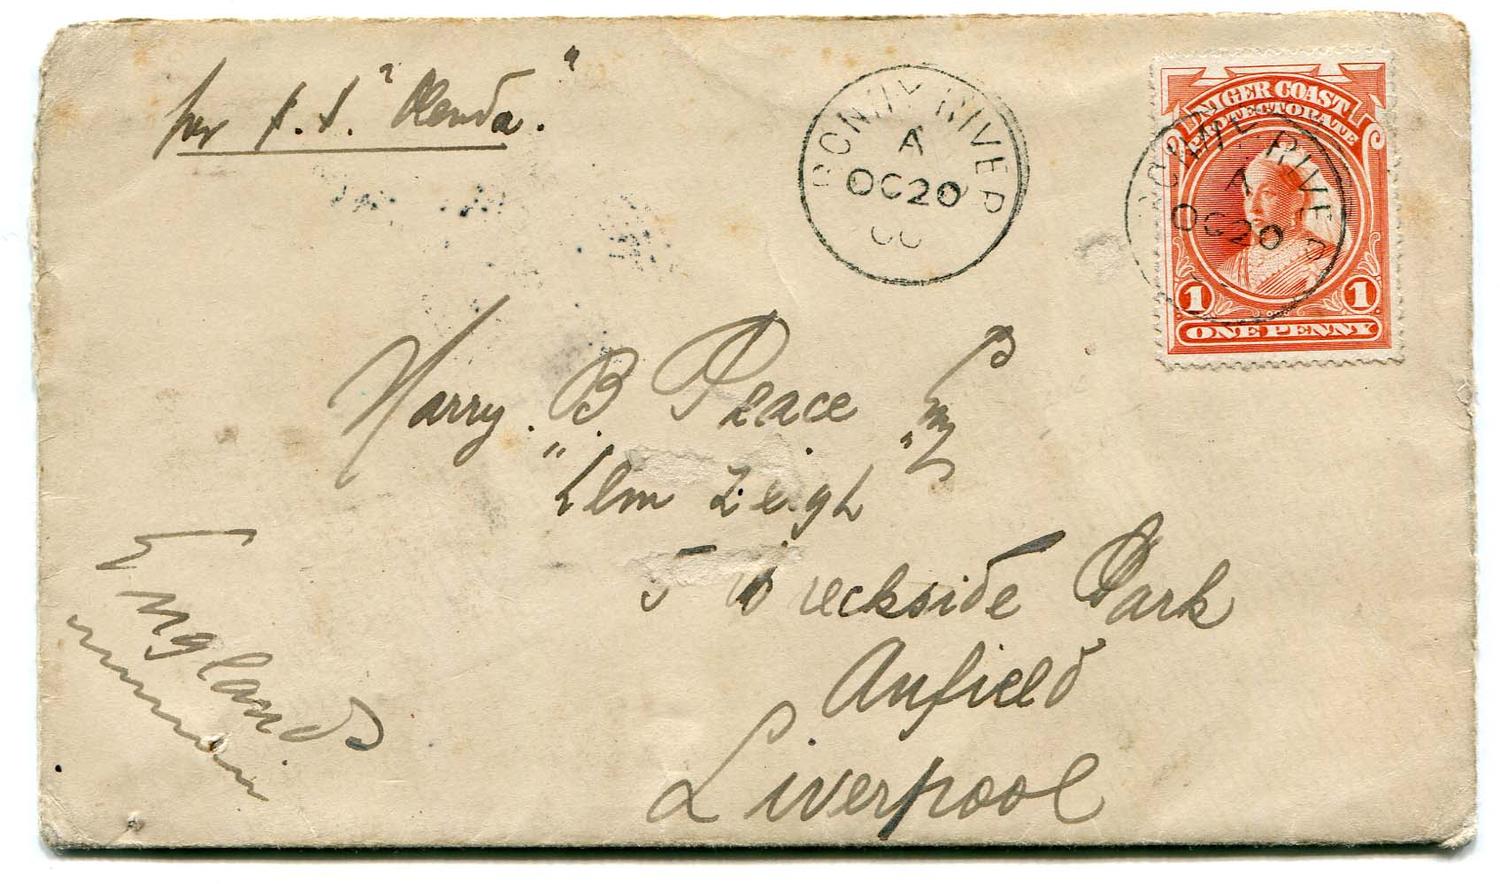 per s.s. "Olenda."
BONNY RIVER
A
OC 20
00
NIGER COAST
PROTECTORATE
BONNY RIVER
A
OC 20
1 1
ONE PENNY
Harry. B. Peace Esq
"Elm Leigh"
5 Breckside Park
Anfield
Liverpool
England